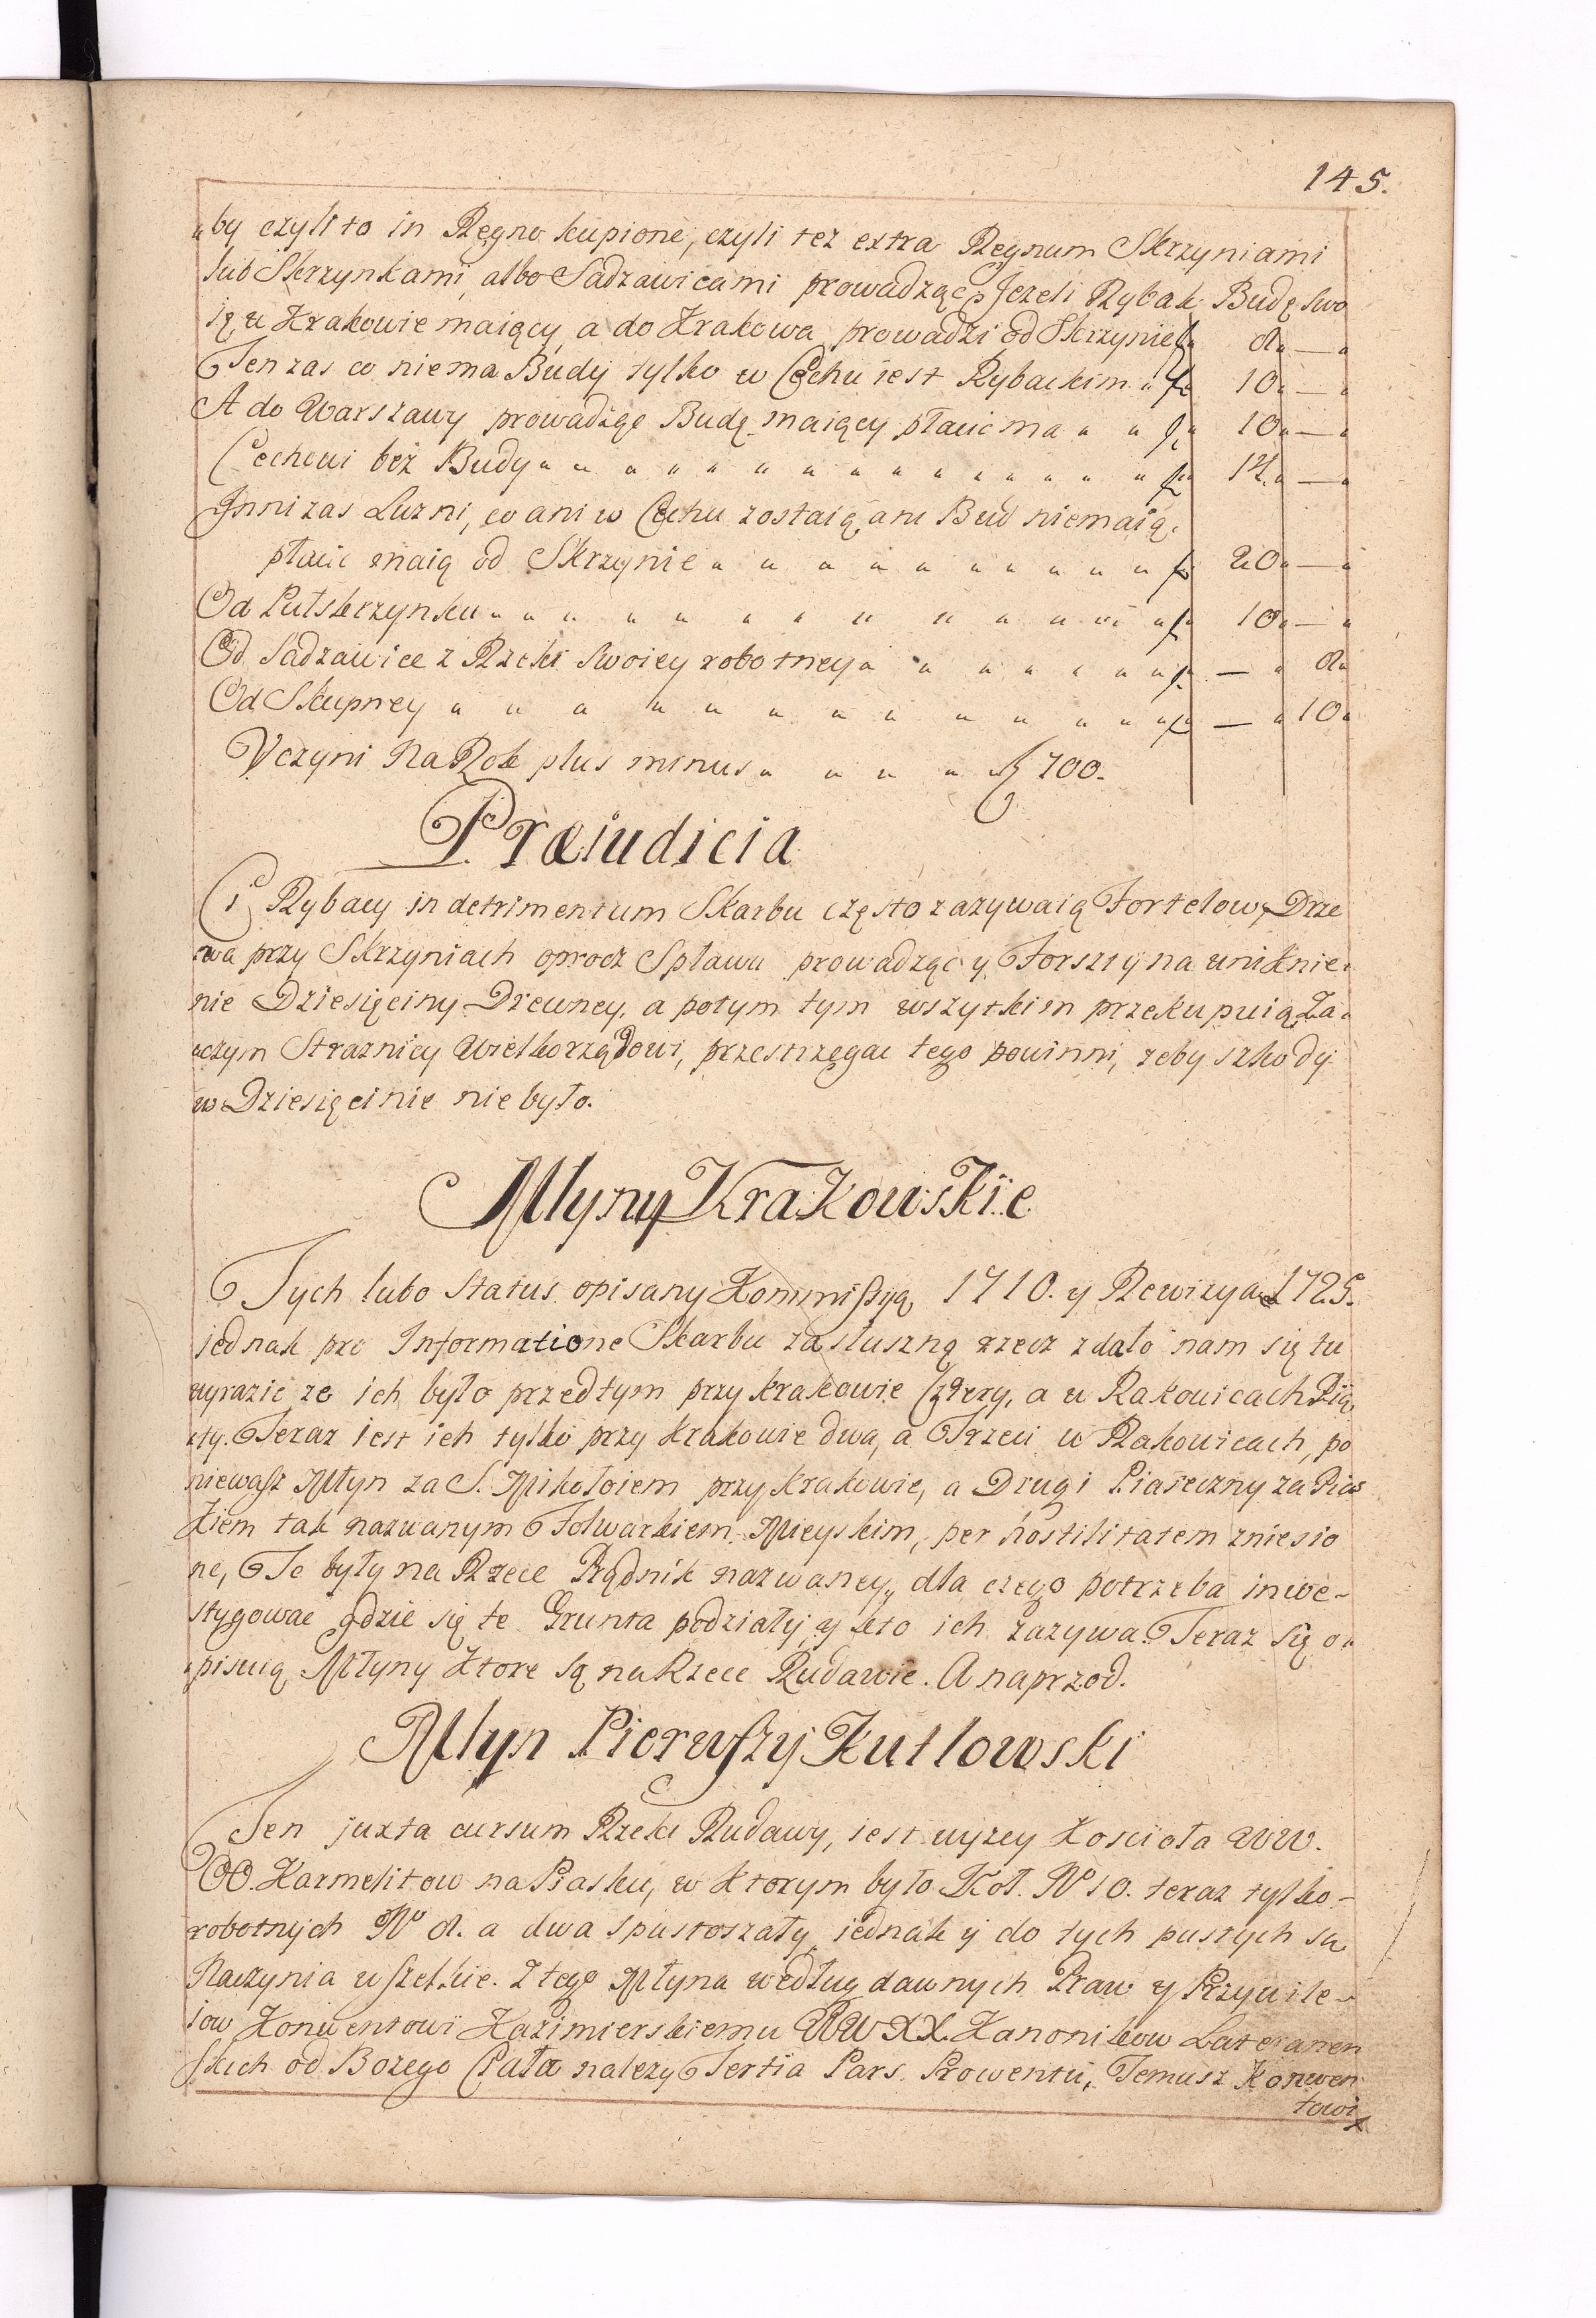 145.
„by czyli to in Regno kupione, czyli tez extra Regnum Skrzyniami
lub Skrzynkami, albo Sadzawicami prowadzące, Jezeli Rybak Budę swo
ią w Krakowie maiący, a do Krakowa prowadzi od Skrzynie f" 8"—"
Ten zas co niema Budy tylko w Cechu iest Rybackim " f" 10"—"
A do Warszawy prowadząc Budę maiący płacic ma " " f" 10"—"
Cechowi bez Budy " " " " " " " " " " " " " f" 12"—"
Jnni zas Luzni, co ani w Cechu zostaią, ani Bud niemaią,
płacic maią od Skrzynie " " " " " " " " " f" 20"—"
Od Pułskrzynku " " " " " " " " " " " " f" 10"—"
Od Sadzawice z Rzeki swoiey robotney " " " " " " " f" — " 8"
Od Skupney " " " " " " " " " " " " " f" — " 10"
Vczyni Na Rok plus minus " " " " " f 700.
Præiudicia
Ci Rybacy in detrimentum Skarbu często zazywaią Fortelow, Drze
wa przy Skrzyniach oprocz Spławu prowadząc y Forszty na uniknie„
nie Dziesięciny Drewney, a potym tym wszytkim przekupuią, Za„
„czym Straznicy Wielkorządowi, przestrzegac tego powinni, zeby szkody
w Dziesięcinie nie było.
Młyny Krakowskie
Tych lubo Status opisany Kommissyą 1710. y Rewizyą 1725.
jednak pro Informatione Skarbu za słuszną rzecz zdało nam się tu
wyrazic ze ich było przedtym przy krakowie Cztery, a w Rakowicach Pią
„ty. Teraz iest ich tylko przy krakowie dwa, a Trzeci w Rakowicach, po
niewasz Młyn za S. Mikołoiem przy krakowie, a Drugi Piaseczny za Pias
kiem tak nazwanym Folwarkiem Mieyskim, per hostilitatem zniesio
ne, Te były na Rzece Prądnik nazwaney, dla czego potrzeba inwe-
stygowac gdzie się te Grunta podziały y kto ich zazywa. Teraz się o„
„pisuią Młyny Ktore są na Rzece Rudawie. A naprzod.
Młyn Pierwszy Kutlowski
Ten juxta cursum Rzeki Rudawy, iest wyzey Kościoła WW.
OO. Karmelitow na Piasku, w ktorym było Koł. No 10. teraz tylko-
robotnych No 8. a dwa spustoszały jednak y do tych pustych są
Naczynia wszelkie. Z tego Młyna według dawnych Praw y Przywile-
iow Konwentowi Kazimierskiemu WW XX. Kanonikow Lateranen
skich od Bozego Ciała nalezy Tertia Pars Prowentu, Temusz Konwen
towi